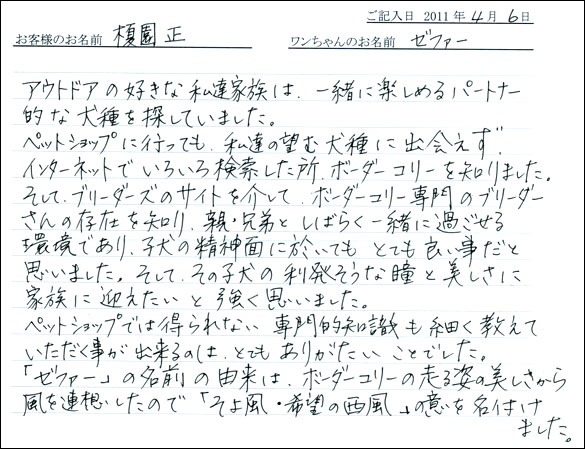 ご記入日 2011年4月6日
お客様のお名前 榎園 正 ワンちゃんのお名前 ゼファー
アウトドアの好きな私達家族は、一緒に楽しめるパートナー
的な犬種を探していました。
ペットショップに行っても、私達の望む犬種に出会えず、
インターネットでいろいろ検索した所、ボーダーコリーを知りました。
そして、ブリーダーズのサイトを介して、ボーダーコリー専門のブリーダー
さんの存在を知り、親・兄弟としばらく一緒に過ごせる
環境であり、子犬の精神面に於いてもとても良い事だと
思いました。そして、その子犬の利発そうな瞳と美しさに
家族に迎えたいと強く思いました。
ペットショップでは得られない専門的知識も細く教えて
いただく事が出来るのは、とてもありがたいことでした。
「ゼファー」の名前の由来は、ボーダーコリーの走る姿の美しさから
風を連想したので「そよ風・希望の西風」の意を名付け
ました。